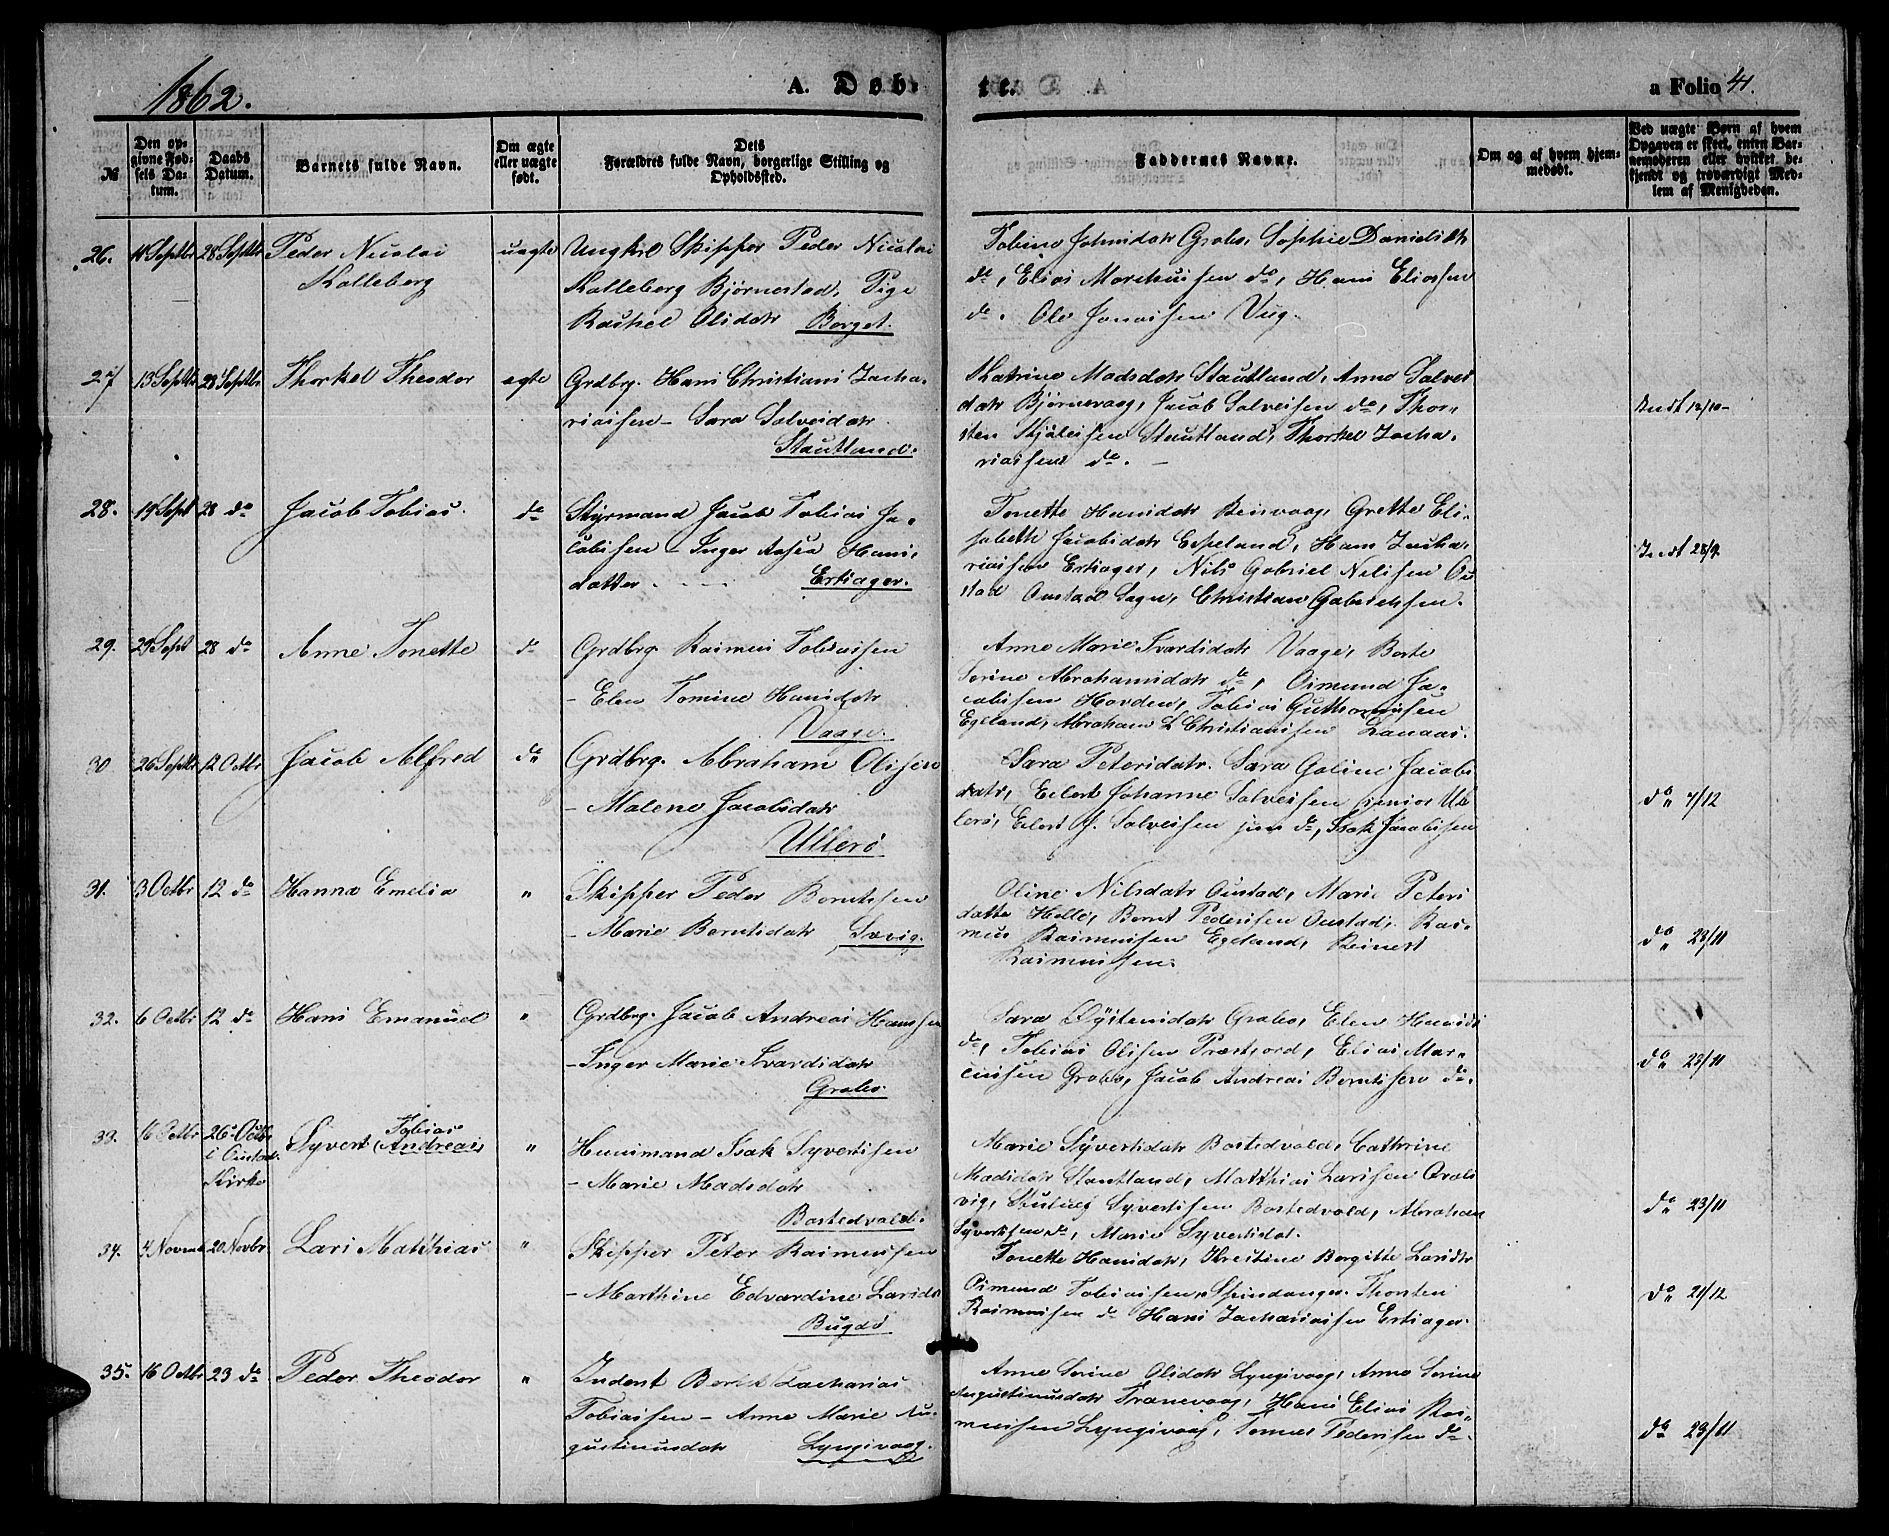 1862.
A. Døb-
te.
a Folio 41.
№
Den op-
givne Fød-
sels Da-
tum.
Daabs
Datum.
Barnets fulde Navn.
Om ægte
eller uægte
født.
Dets
Forældres fulde Navn, borgerlige Stilling og
Opholdssted.
Faddernes Navne.
Om og af hvem hjem-
medøbt.
Ved uægte Børn af hvem
Opgaven er skeet, enten Bar-
nemoderen eller hvilket be-
kjendt og troværdigt Med-
lem af Menigheden.
26. 11 Septbr 28 Septbr Peder Nicolai
Kalleberg
uægte
Ungkrl Skipper Peder Nicolai
Kalleberg Bjørnestad, Pige
Rachel Olsdatr Borget.
Tobine Johnsdatr Grobø, Sophie Danielsdtr
do, Elias Marchussen do, Hans Eliassen
do. Ole Jonassen Vug.
27 13 Septbr 28 Septbr Thorkel Theodor ægte
Grdbrg. Hans Christians Zacha-
riassen – Sara Salvesdatr
Stautland.
Kathrine Madsdatr Stautland, Anne Salves
datr Bjørnevaag, Jacob Salvesen do, Thor-
sten Kjølesen Stautland, Thorkel Zacha-
riassen do. –
Indt 12/10 –
28. 19 Sept 28 do Jacob Tobias. do
Styrmand Jacob Tobias Ja-
cobsen – Inger Aasea Hans-
datter. Ertzager.
Tonette Hansdatr Rensvaag, Grette Eli-
sabeth Jacobsdatr Espeland, Hans Zacha-
riassen Ertzager, Nils Gabriel Nilssen Ou
stad Oustad Sogn, Christian Gabrielsen.
Indt 28/9
29. 29 Sept 28 do Anne Tonette do
Grdbrg Rasmus Tobiassen
– Elen Tomine Hansdatr
Vaage.
Anne Marie Tvardsdatr Vaage, Berte
Serine Abrahamsdatr do, Osmund Ja-
cobsen Hovden, Tobias Guthormsen
Egeland, Abraham L Christiansen Lanaas.
30 26 Septbr 12 Octbr Jacob Alfred do
Grdbrg. Abraham Olssen
– Malene Jacobsdatr
Ullerø
Sara Petersdatr. Sara Galine Jacobs
datr, Eilert Johanne Salvesen senior Ul-
lerø, Eilert J. Salvesen jun do, Isak Jacobsen
do 7/12
31. 3 Octbr 12 do Hanna Emelia "
Skipper Peder Berntsen
– Marie Berntsdatr Sævig.
Oline Nilsdatr Oustad, Marie Peters
datter Helle, Bernt Pedersen Oustad, Ras-
mus Rasmussen Egeland, Reinert
Rasmussen.
do 23/11
32. 6 Octbr 12 do Hans Emanuel "
Grdbrg. Jacob Andreas Hanssen
– Inger Marie Tvardsdatr
Grobø
Sara Øystensdatr Grobø, Elen Hansdt
do, Tobias Olsen Præstjord, Elias Mar-
cussen Grobø, Jacob Andreas Berntsen do.
do 23/11
33. 16 Octbr 26 Octbr
i Oustad
Kirke
Syvert (Andreas)
Tobias
"
Huusmand Isak Syvertsen
– Marie Madsdatr
Bostedvold.
Marie Syvertsdatr Bostedvold, Cathrine
Madsdatr Stautland, Mathias Larsen Qvals
vig, Syvertsen Bostedvold, Abraham
Syvertsen do, Marie Syvertsdat.
do 23/11
34. 4 Novmb 20 Novbr Lars Mathias "
Skipper Peter Rasmussen
– Marthine Edvardine Larsdt
Bugdø
Tonette Hansdatr, Kirstine Bergitte Larsdtr
Osmund Tobiassen, Spindanger. Thorsten
Rasmussen do Hans Zachariassen Ertzager.
do 21/12
35. 16 Octbr 23 do Peder Theodor "
Inderst Zacharias
Tobiassen – Anne Marie Au-
gustinusdatr Lyngsvaag.
Anne Serine Olsdatr Lyngsvaag, Anne Serine
Augustinusdatr Tranevaag, Hans Elias Ras-
mussen Lyngsvaag, Tomas Pedersen do.
do 23/11